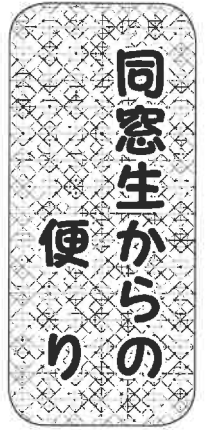 同窓生からの
便り